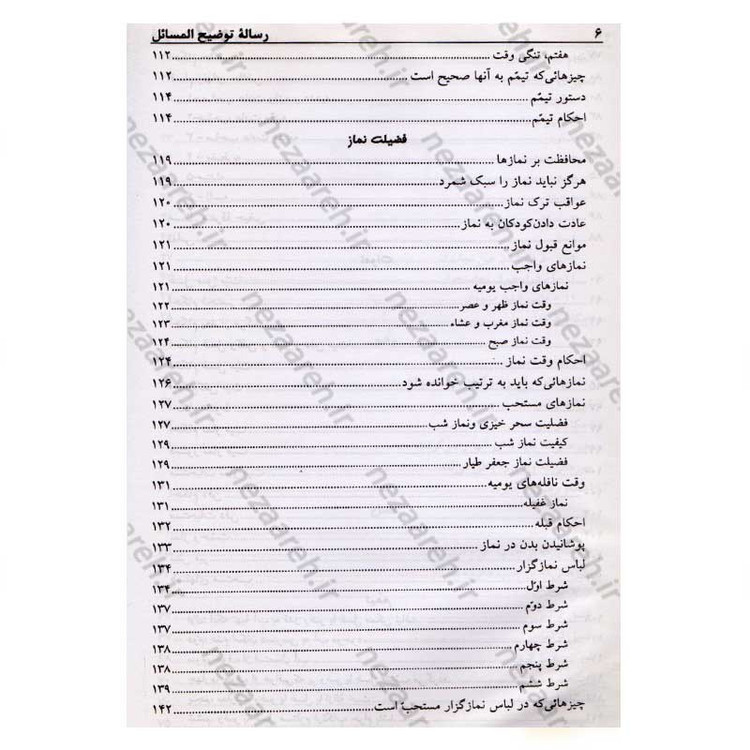 ۶ رسالهٔ توضیح المسائل
هفتم، تنگی وقت ........ ۱۱۲
چیزهائی‌که تیمّم به آنها صحیح است ........ ۱۱۲
دستور تیمّم ........ ۱۱۴
احکام تیمّم ........ ۱۱۴
فضیلت نماز
محافظت بر نمازها ........ ۱۱۹
هرگز نباید نماز را سبک شمرد ........ ۱۱۹
عواقب ترک نماز ........ ۱۲۰
عادت دادن‌کودکان به نماز ........ ۱۲۰
موانع قبول نماز ........ ۱۲۱
نمازهای واجب ........ ۱۲۱
نمازهای واجب یومیه ........ ۱۲۱
وقت نماز ظهر و عصر ........ ۱۲۲
وقت نماز مغرب و عشاء ........ ۱۲۳
وقت نماز صبح ........ ۱۲۴
احکام وقت نماز ........ ۱۲۴
نمازهائی‌که باید به ترتیب خوانده شود ........ ۱۲۶
نمازهای مستحب ........ ۱۲۷
فضلیت سحر خیزی ونماز شب ........ ۱۲۷
کیفیت نماز شب ........ ۱۲۹
فضیلت نماز جعفر طیار ........ ۱۲۹
وقت نافله‌های یومیه ........ ۱۳۱
نماز غفیله ........ ۱۳۱
احکام قبله ........ ۱۳۲
پوشانیدن بدن در نماز ........ ۱۳۳
لباس نمازگزار ........ ۱۳۴
شرط اوّل ........ ۱۳۴
شرط دوّم ........ ۱۳۷
شرط سوم ........ ۱۳۷
شرط چهارم ........ ۱۳۸
شرط پنجم ........ ۱۳۸
شرط ششم ........ ۱۳۹
چیزهائی‌که در لباس نمازگزار مستحبّ است ........ ۱۴۲
nezaareh.ir